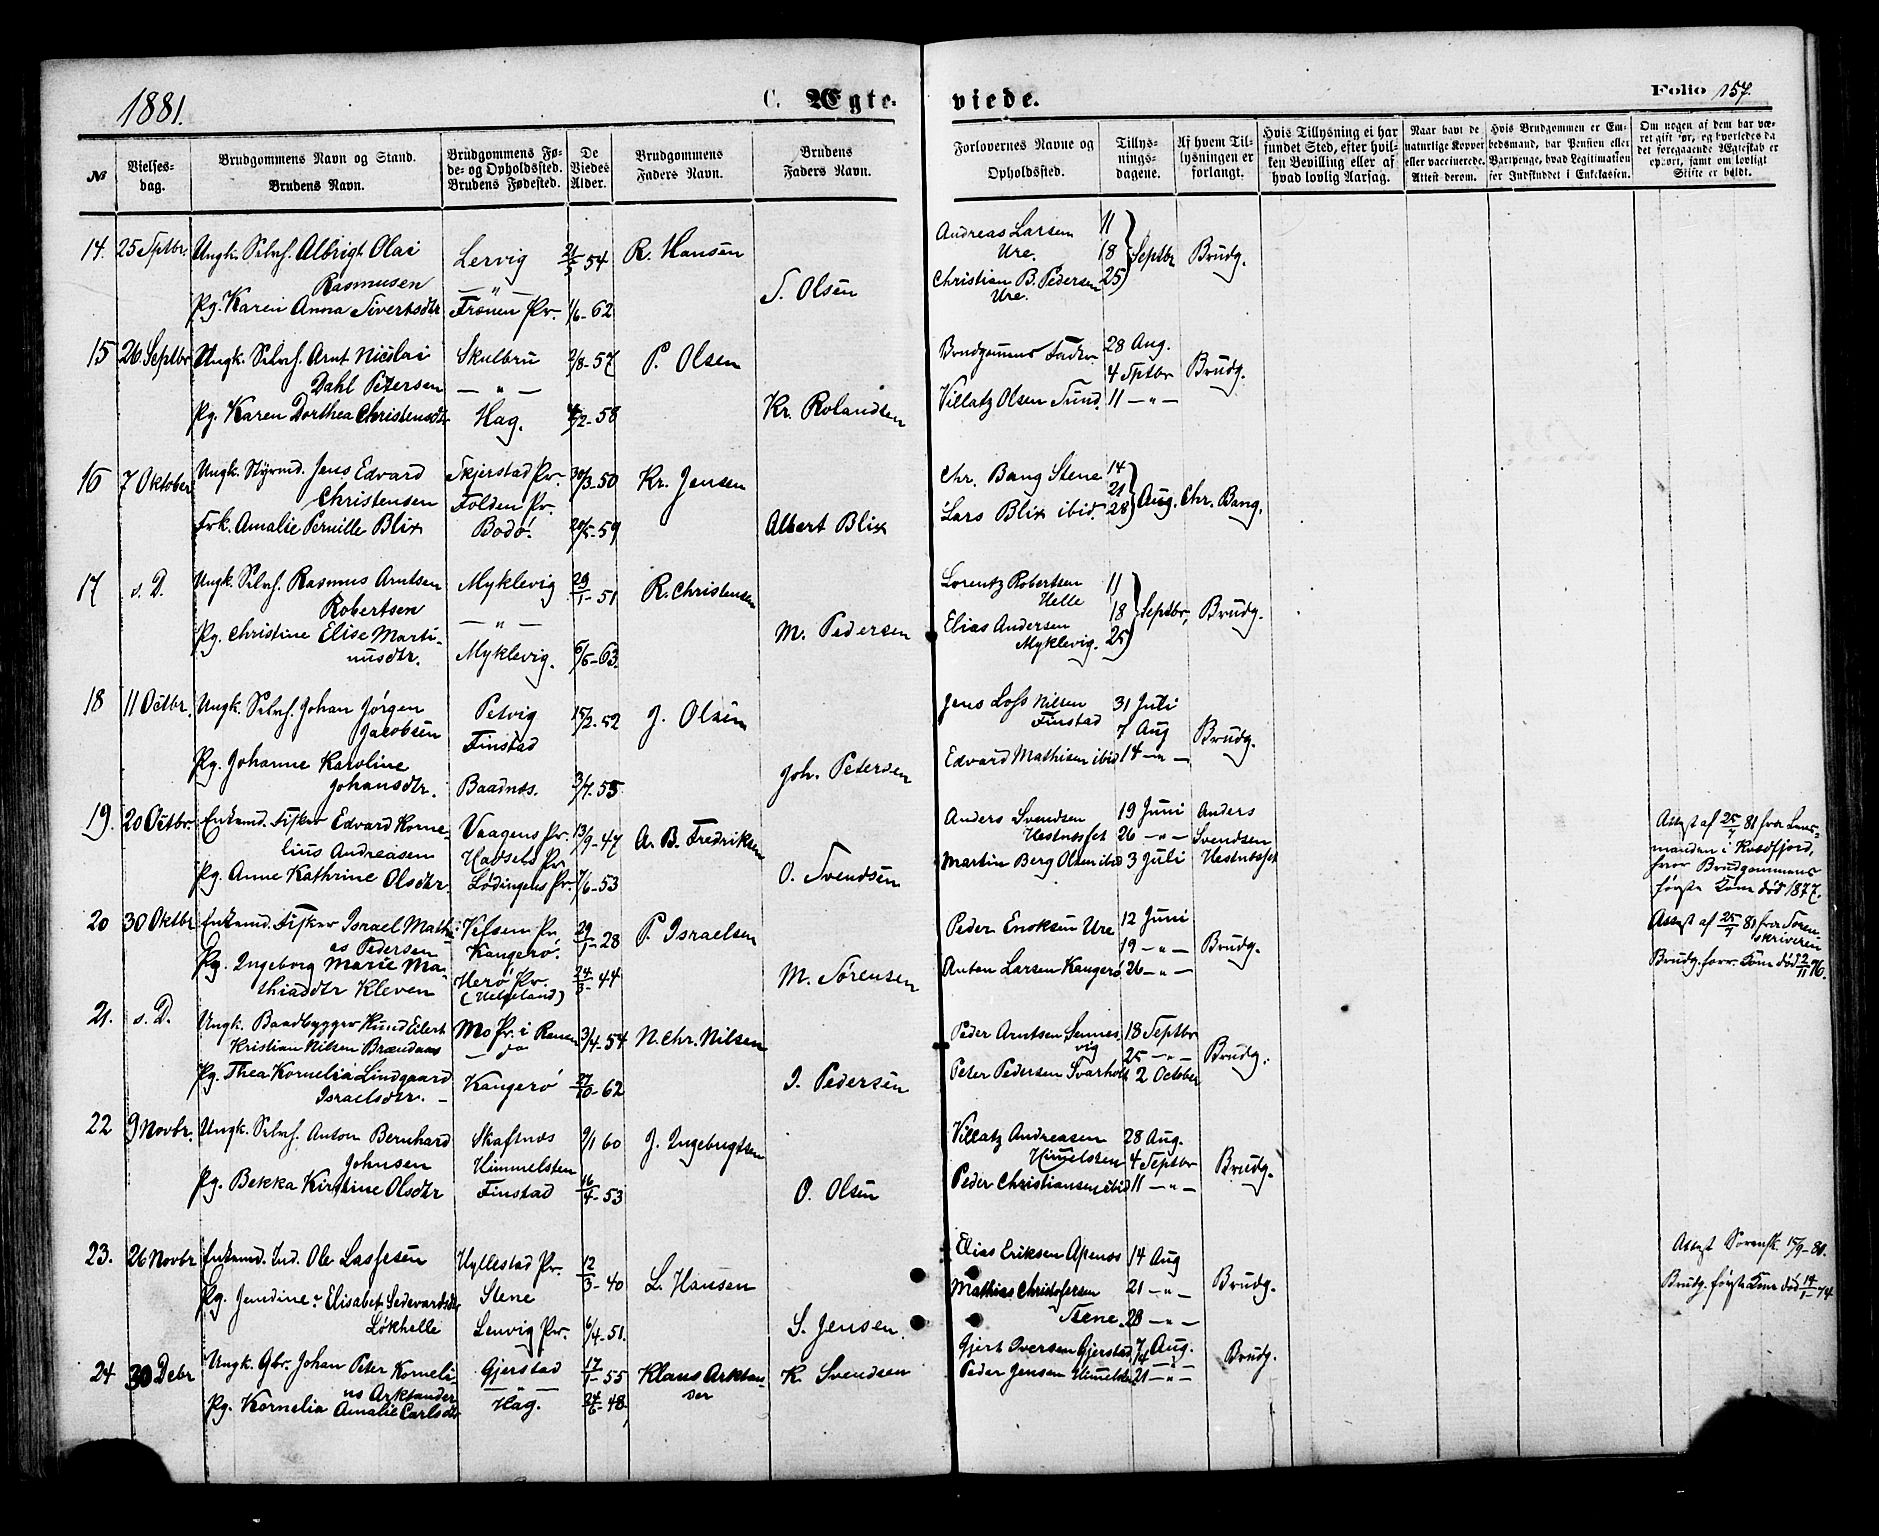 1881.
C. Ægte-
viede.
Folio 157.
№
Vielses-
dag.
Brudgommens Navn og Stand.
Brudens Navn.
Brudgommens Fø-
de- og Opholdssted.
Brudens Fødested.
De
Viedes
Alder.
Brudgommens
Faders Navn.
Brudens
Faders Navn.
Forlovernes Navne og
Opholdssted.
Tillys-
nings-
dagene.
Af hvem Til-
lysningen er
forlangt.
Hvis Tillysning ei har
fundet Sted, efter hvil-
ken Bevilling eller af
hvad lovlig Aarsag.
Naar havt de
naturlige Kopper
eller vaccinerede.
Attest derom.
Hvis Brudgommen er Em-
bedsmand, har Pension eller
Vartpenge, hvad Legitimation
for Indskuddet i Enkekassen.
Om nogen af dem har væ-
ret gift før, og hvorledes da
det foregaaende Ægteskab er
ophørt, samt om lovligt
Skifte er holdt.
14. 25 Septbr. Ungk. Selvf. Albrigt Olai Lervig 21/5 54 R. Hansen Andreas Larsen 11
Rasmusen — " — Ure. 18 Septbr Brudg.
Pg. Karen Anna Sivertsdtr Frønen Pr. 1/6-62 S. Olsen Christian B. Pedersen 25
Ure.
15 26 Septbr Ungk. Selvf. Arnt Nicolai Skulbru 2/8-57 P. Olsen Brudgommens Fader 28 Aug.
Dahl Petersen — " — 4 Sptbr Brudg.
Pg. Karen Dorthea Christensdtr Hag. 4/2-58 Kr. Rolandsen Villatz Olsen Sund. 11 — " —
16 7 Oktober Ungk. Styrmd. Jens Edvard Skjerstad Pr. 30/3-50 Kr. Jensen Chr. Bang Stene 14
Christensen Folden Pr. 21 Aug. Chr. Bang.
Frk. Amalie Pernille Blix Bodø. 20/5-59 Albert Blix Lars Blix ibid. 28
17 s. D. Ungk. Selvf. Rasmus Arntsen Myklevig 29/1-51 R. Christensen Lorentz Robertsen 11
Robertsen — " — Helle 18 Septbr, Brudg.
Pg. Christine Elise Marti- M. Pedersen Elias Andersen
nusdtr. Myklevig. 6/6-63. Myklevig. 25
18 11 Octbr. Ungk. Selvf. Johan Jørgen Petvig 15/2-52 J. Olsen Jens Loss Nilsen 31 Juli
Jacobsen Finstad Finstad 7 Aug Brudg.
Pg. Johanne Karoline Joh. Petersen Edvard Mathisen ibid 14 — " —
Johansdtr. Baadnes. 3/7-55
19. 20 Octbr. Enkemd. Fisker Edvard Korne- Vaagens Pr. 13/9-47 A. B. Fredriksen Anders Svendsen 19 Juni Anders
lius Andreasen Hadsels Pr. Hestnesset 26 — " — Svendsen
Pg. Anne Kathrine Olsdtr. Lødingens Pr. 7/6-53 O. Svendsen Martin Berg Olsen ibid 3 Juli Hestnesset
Attest af 25/7 81 fra Lens-
manden i
hvor Brudgommens
første Kone død 1877.
20 30 Oktbr Enkemd. Fisker Israel Math- Pr. 29/1-28 P. Israelsen Peder Enoksen Ure 12 Juni
es Pedersen Kangerø. 19 — " — Brudg.
Pg. Ingeborg Marie Ma- Herø Pr. 24/3-44 M. Sørensen Anton Larsen Kangerø 26 — " —
thiasdtr Kleven (Helgeland)
Attest af 25/7 81 fra Soren-
skriveren
Brudg. forr. Kone død 2/11 76.
21. s. D. Ungk. Baadbygger Knud Eilert Mo Pr. i Ranen 3/4-54 N. Chr. Nilsen Peder Arntsen Sennes- 18 Septbr
Kristian Nilsen Brændaas — do vig 25 — " — Brudg.
Pg. Thea Kornelia Lindgaard Kangerø 27/10-62 I. Pedersen Peter Pedersen Svarholt 2 October
Israelsdtr. —
22 9 Novbr. Ungk. Selvf. Anton Bernhard Skaftnes 9/1 60 J. Ingebrigtsen Villatz Andreasen 28 Aug.
Johnsen Himmelsten Himelsten 4 Septbr Brudg.
Pg. Bekka Kirstine Olsdtr Finstad 16/4-53 O. Olsen Peder Christiansen ibid 11 — " —
23. 26 Novbr Enkemd. Ind. Ole Lassesen Hyllestad Pr. 12/3-40 L. Hansen Elias Eriksen Apenes 14 Aug
Pg. Jendine Elisabet Sedevardsdtr Stene Mathias Christofersen 21 — " — Brudg.
Løkhelle Lenvig Pr. 6/4-51. S. Jensen. Stene. 28 — " —
Attest Sorensk. 15/9-81.
Brudg. første Kone død 14/1-74
24 30 Debr Ungk. Gbr. Johan Peter Korneli- Gjerstad 17/1-55 Klaus Arktan- K. Svendsen Gjert Iversen Gjerstad, 7 Aug. Brudg.
us Arktander — " — der Peder Jensen Himelsten 14
Pg. Kornelia Amalie Carlsdtr Hag. 24/6-48, 21 — " —